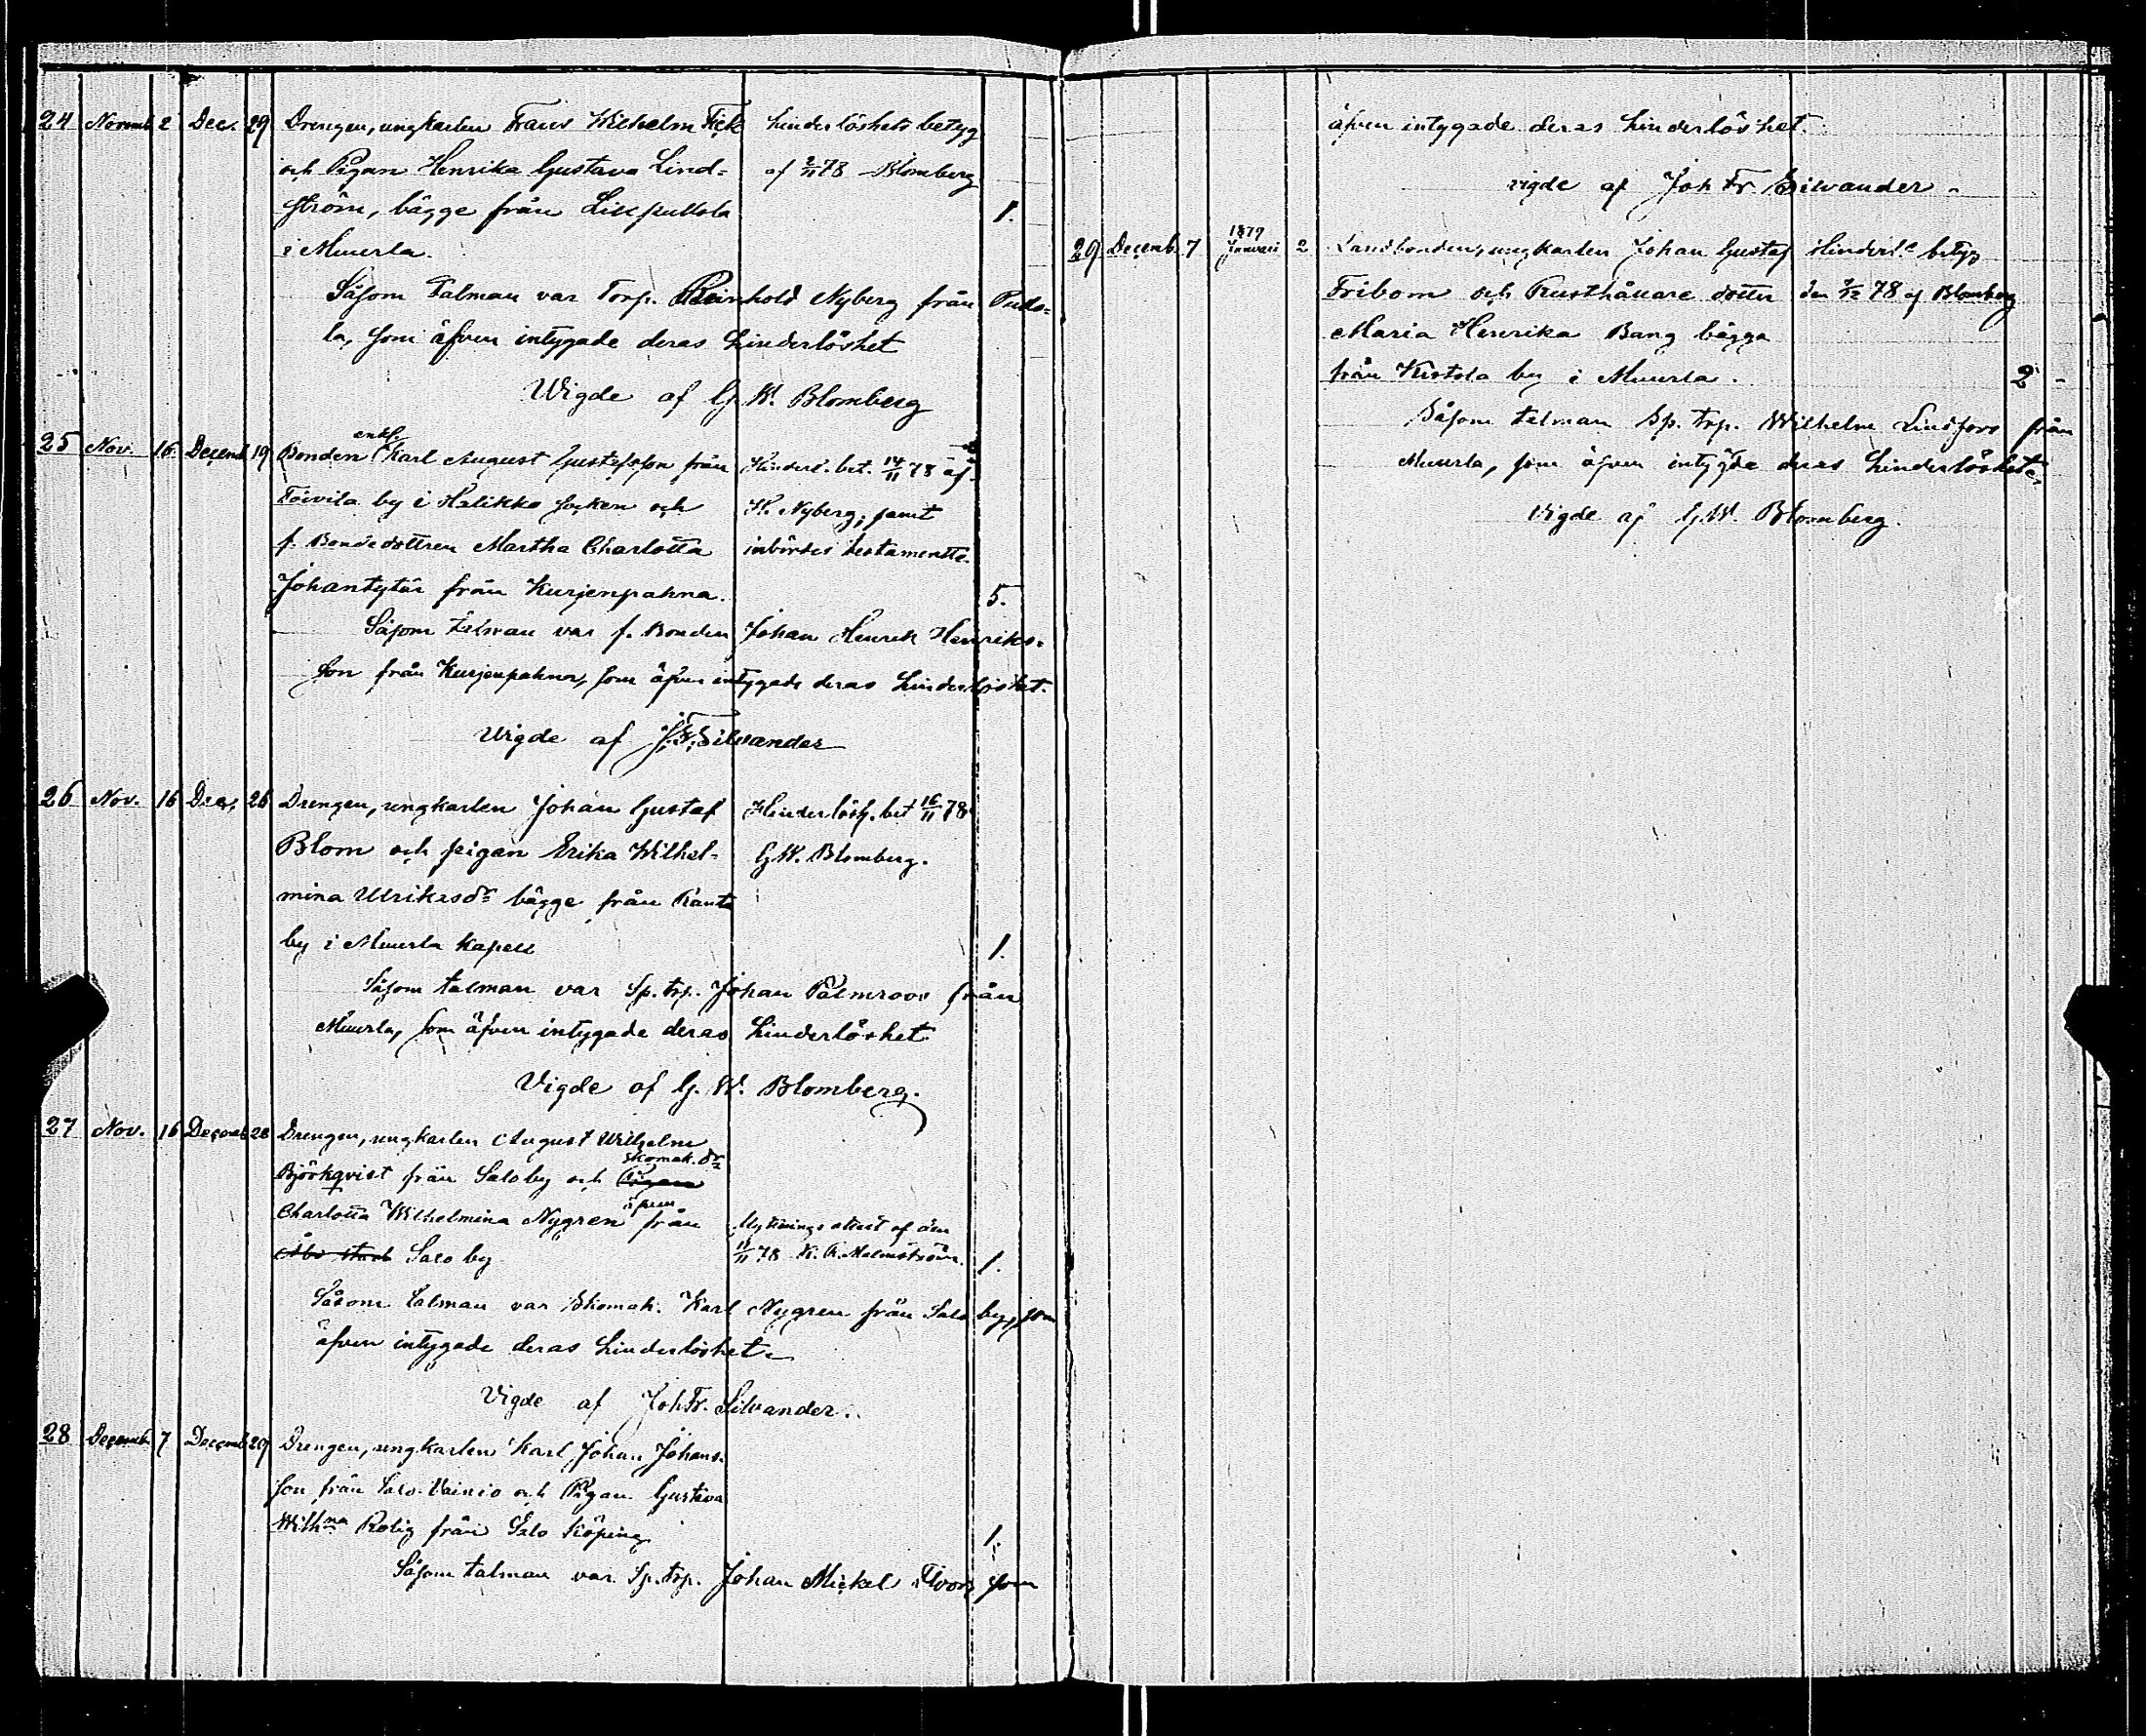 24 Novemb. 2 Dec. 29 Drengen, ungkarlen Frans Wilhelm Fick hinderlöshets betyg
och Pigan Henrika Gustava Lind= af 2/11 78 Blomberg
ström, bägge från 1.
i Muurla.
Såsom Talman var Torp. Reinhold Nyberg från Pullo=
la, som äfven intygade deras hinderlöshet
Wigde af G. W. Blomberg
25 Nov. 16 Decemb. 19 Bonden enkl. Karl August Gustafsson från Hinderl. bet. 14/11 78 af
Toivila by i Halikko socken och K. Nyberg, samt
f. Bondedottren Martha Charlotta inbördes testamente.
Johantytär från Kurjenpahna. 5.
Såsom talman var f. Bonden Johan Henrik Henriks-
son från Kurjenpahna, som äfven intygade deras hinderlöshet.
Vigde af J. F. Silvander
26 Nov. 16 Dec. 26 Drengen, ungkarlen Johan Gustaf Hinderlösh. bet 16/11 78
Blom och pigan Erika Wilhel= G. W. Blomberg.
mina Ulriksdr bägge från Ranta
by i Muurla kapell 1.
Såsom talman var Sp. trp. Johan Palmroos från
Muurla, som äfven intygade deras hinderlöshet
Vigde af G. W. Blomberg.
27 Nov. 16 Decemb. 28 Drengen, ungkarlen August Wilhelm
Björkqvist från Salo by och Pigan skomak. dr
Charlotta Wilhelmina Nygren från Flyttnings attest af den
Åbo stad Salo by /11 78 K. A. Malmström. 1.
Såsom talman var Skomak. Karl Nygren från Salo by, som
äfven intygade deras hinderlöshet.
Vigde af Joh Fr. Silvander.
28 Decemb. 7 Decemb. 29 Drengen, ungkarlen Karl Johan Johans-
son från Salo Vainio och Pigan Gustava
Wilhna Rolig från Salo Köping 1.
Såsom talman var Sp. trp. Johan Mickel som
äfven intygade deras hinderlöshet.
vigde af Joh Fr. Silvander.
29 Decemb. 7 1879 Januari 2 Landbonden, ungkarlen Johan Gustaf Hinderl. betyg
Fribom och Rusthållare dotter den 7/12 78 af Blomberg
Maria Henrika Bang bägga
från Kistola by i Muurla. 2 -
Såsom talman Sp. trp. Wilhelm Lindfors från
Muurla, som äfven intygde deras hinderlöshet.
Vigde af G. W. Blomberg.